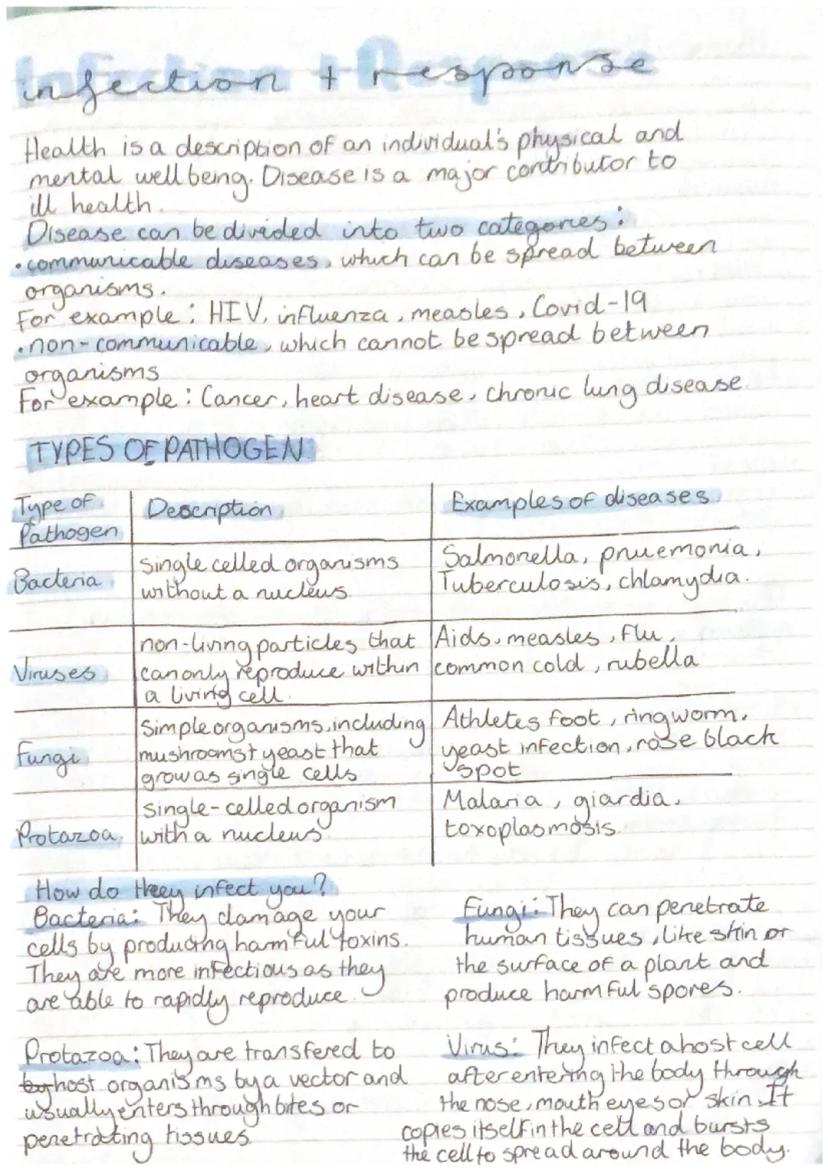 infection + response
Health is a description of an individual's physical and
mental well being. Disease is a major contributor to
ill health.
Disease can be divided into two categories:
• communicable diseases, which can be spread between
organisms.
For example: HIV, influenza, measles, Covid-19
• non-communicable, which cannot be spread between
organisms
For example: Cancer, heart disease, chronic lung disease
TYPES OF PATHOGEN
Type of Pathogen
Description
Examples of diseases
Bacteria
single celled organisms
without a nucleus.
Salmonella, pnuemonia,
Tuberculosis, chlamydia.
Viruses
non-living particles that
can only reproduce within
a living cell.
Aids, measles, flu,
common cold, rubella
Fungi
Simple organisms, including
mushrooms + yeast that
grow as single cells
Athletes foot, ringworm,
yeast infection, rose black
spot
Protazoa
single-celled organism
with a nucleus
Malaria, giardia,
toxoplasmosis.
How do they infect you?
Bacteria: They damage your
cells by producing harmful toxins.
They are more infectious as they
are able to rapidly reproduce.
Fungi: They can penetrate
human tissues, like skin or
the surface of a plant and
produce harmful spores.
Protazoa: They are transfered to
host organisms by a vector and
usually enters through bites or
penetrating tissues
Virus: They infect a host cell
after entering the body through
the nose, mouth eyes or skin. It
copies itself in the cell and bursts
the cell to spread around the body.